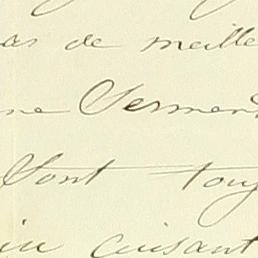 as de meille
ne Serment
Sont touj
in cuisant